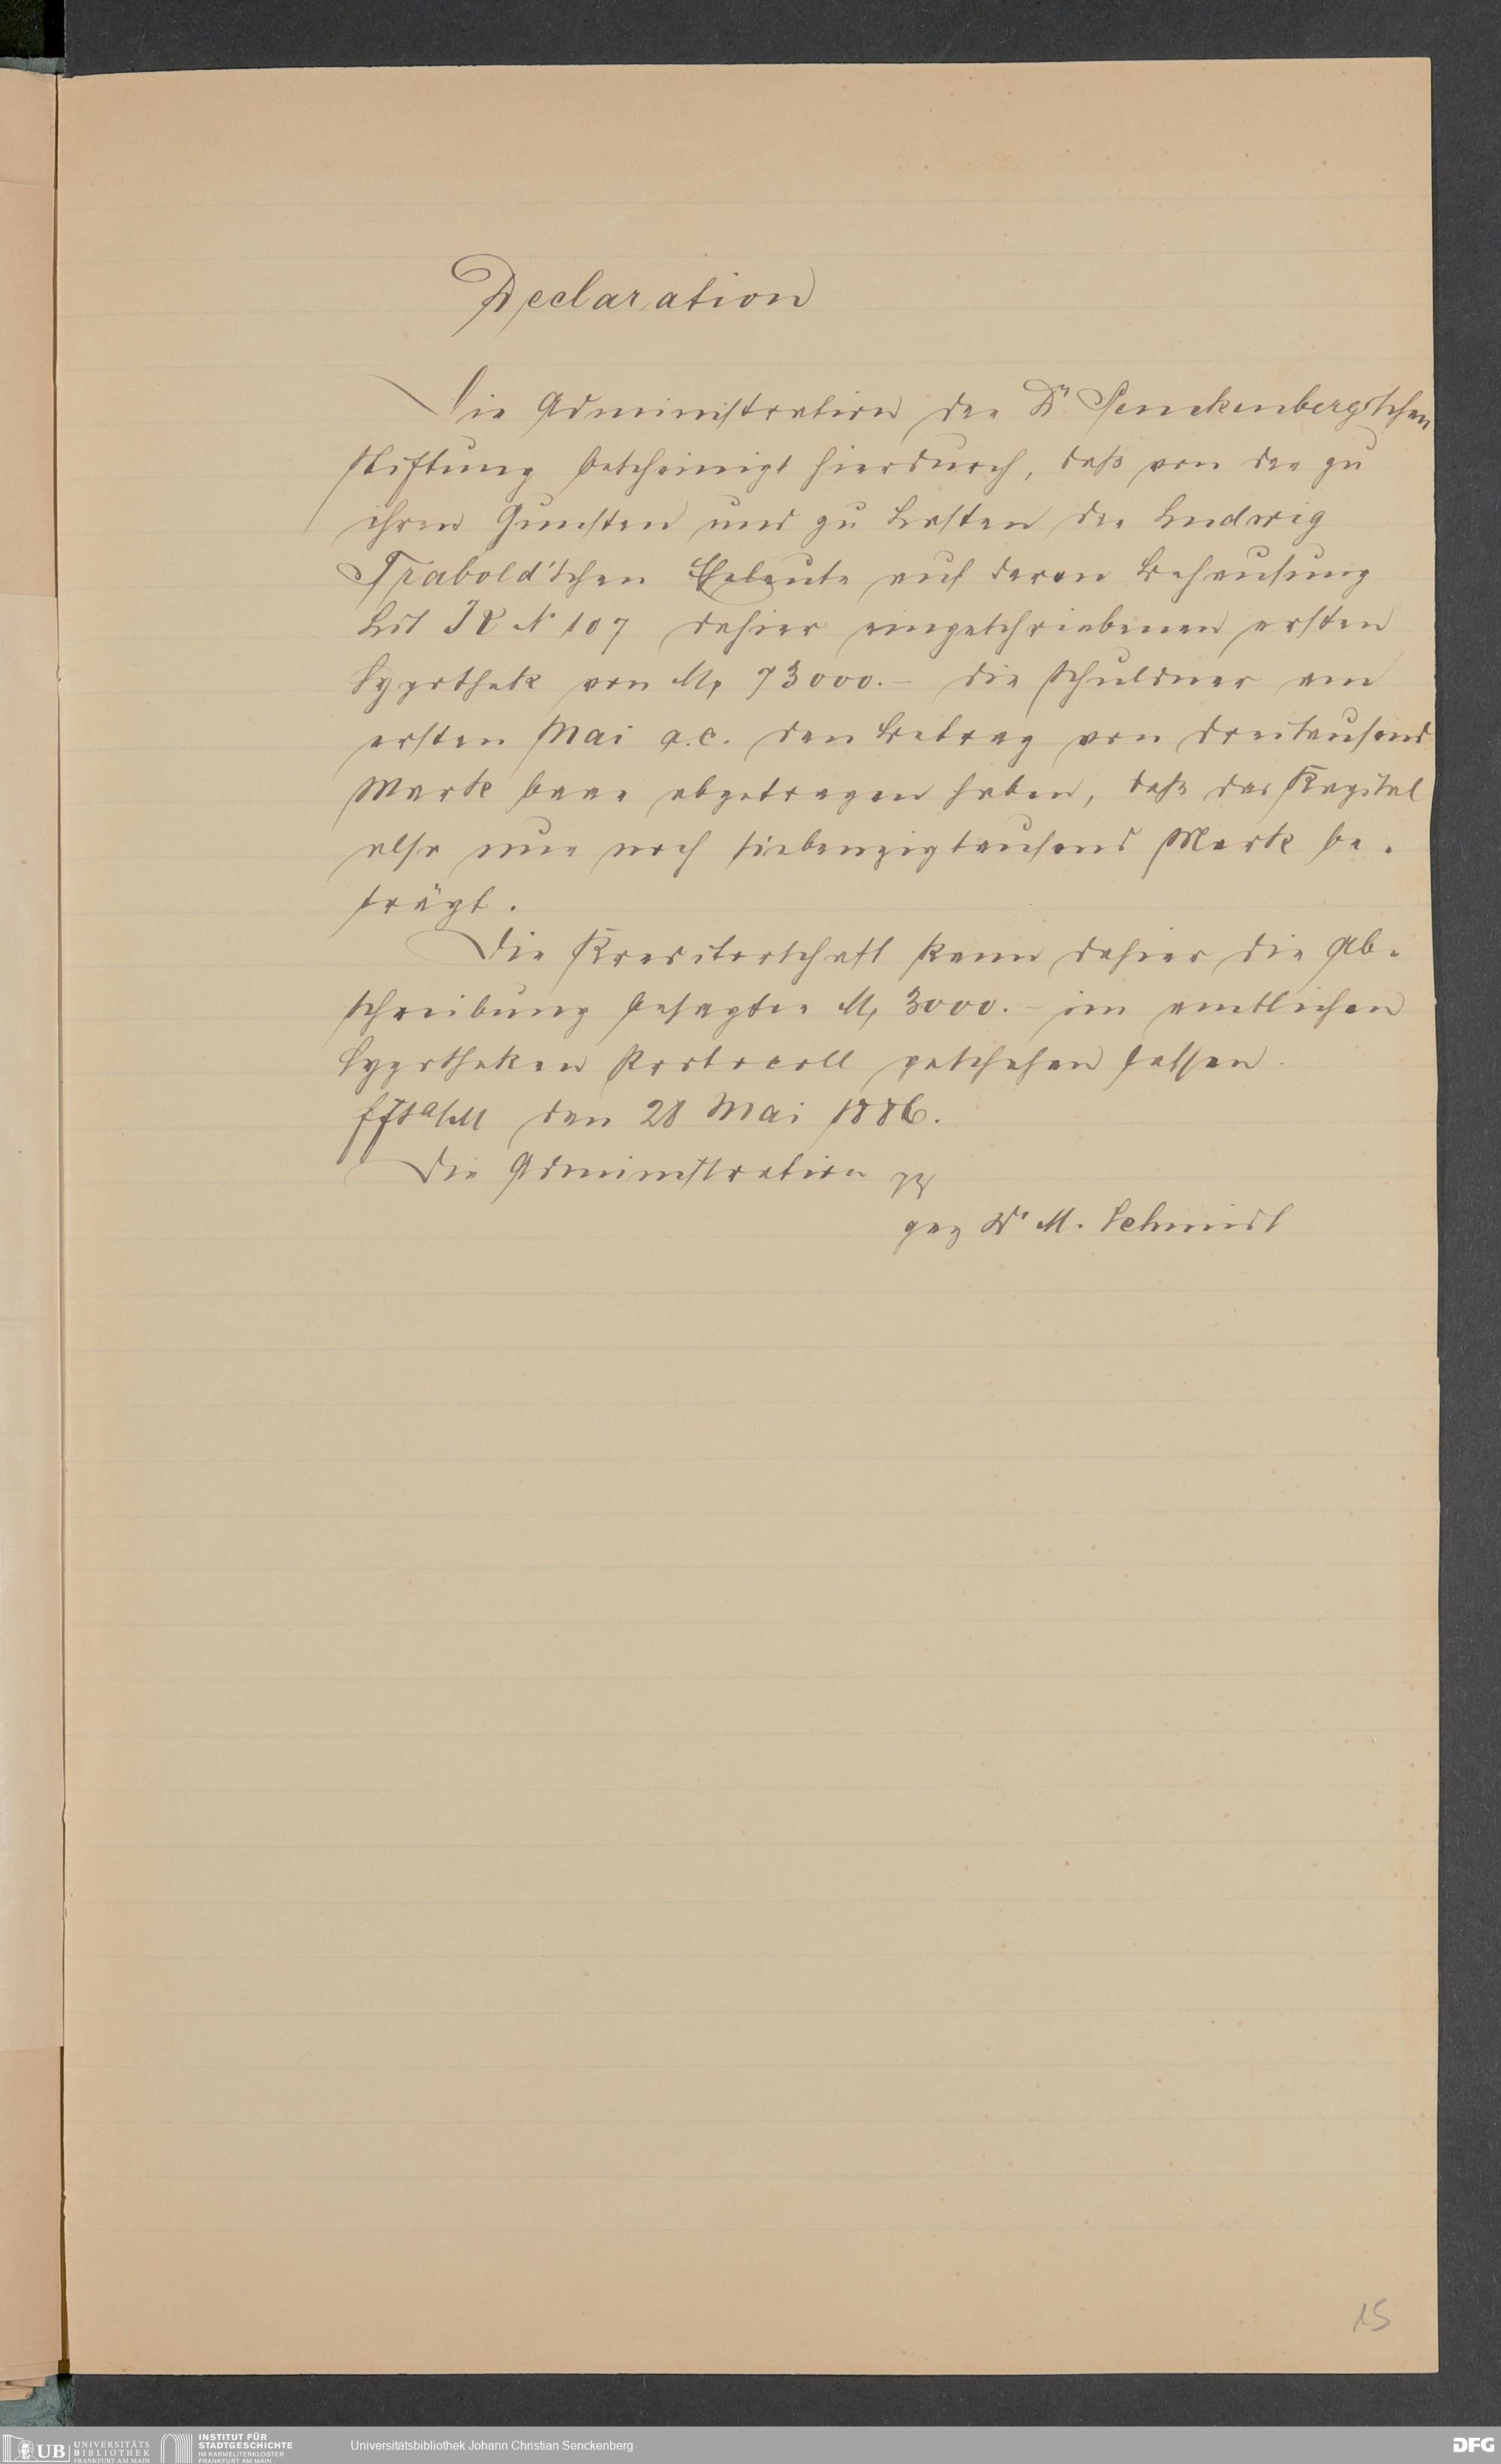 Declaration
Die Administration der Dr Senckenberg'schen
Stiftung bescheinigt hierdurch, daß von der zu
ihren Gunsten und zu Lasten der Ludwig
Trabold'schen Eheleute auf deren Behausung
Lit N 107 dahier eingeschriebenen ersten
Hypothek von M, 73000.- die Schuldner am
ersten Mai a.c. den Betrag von dreitausend
Mark baar abgetragen haben, daß das Kapital
also nur noch siebenzigtausend Mark be-
trägt.
Die Kreditorschaft kann daher die Ab-
schreibung besagter M, 3000.- im amtlichen
Hypotheken Protocoll geschehen lassen.
Ffta/M den 28 Mai 1886.
Die Administration
gez Dr M. Schmidt
15
UB
UNIVERSITÄTS
BIBLIOTHEK
FRANKFURT AM MAIN
INSTITUT FÜR
STADTGESCHICHTE
IM KARMELITERKLOSTER
FRANKFURT AM MAIN
Universitätsbibliothek Johann Christian Senckenberg
DFG